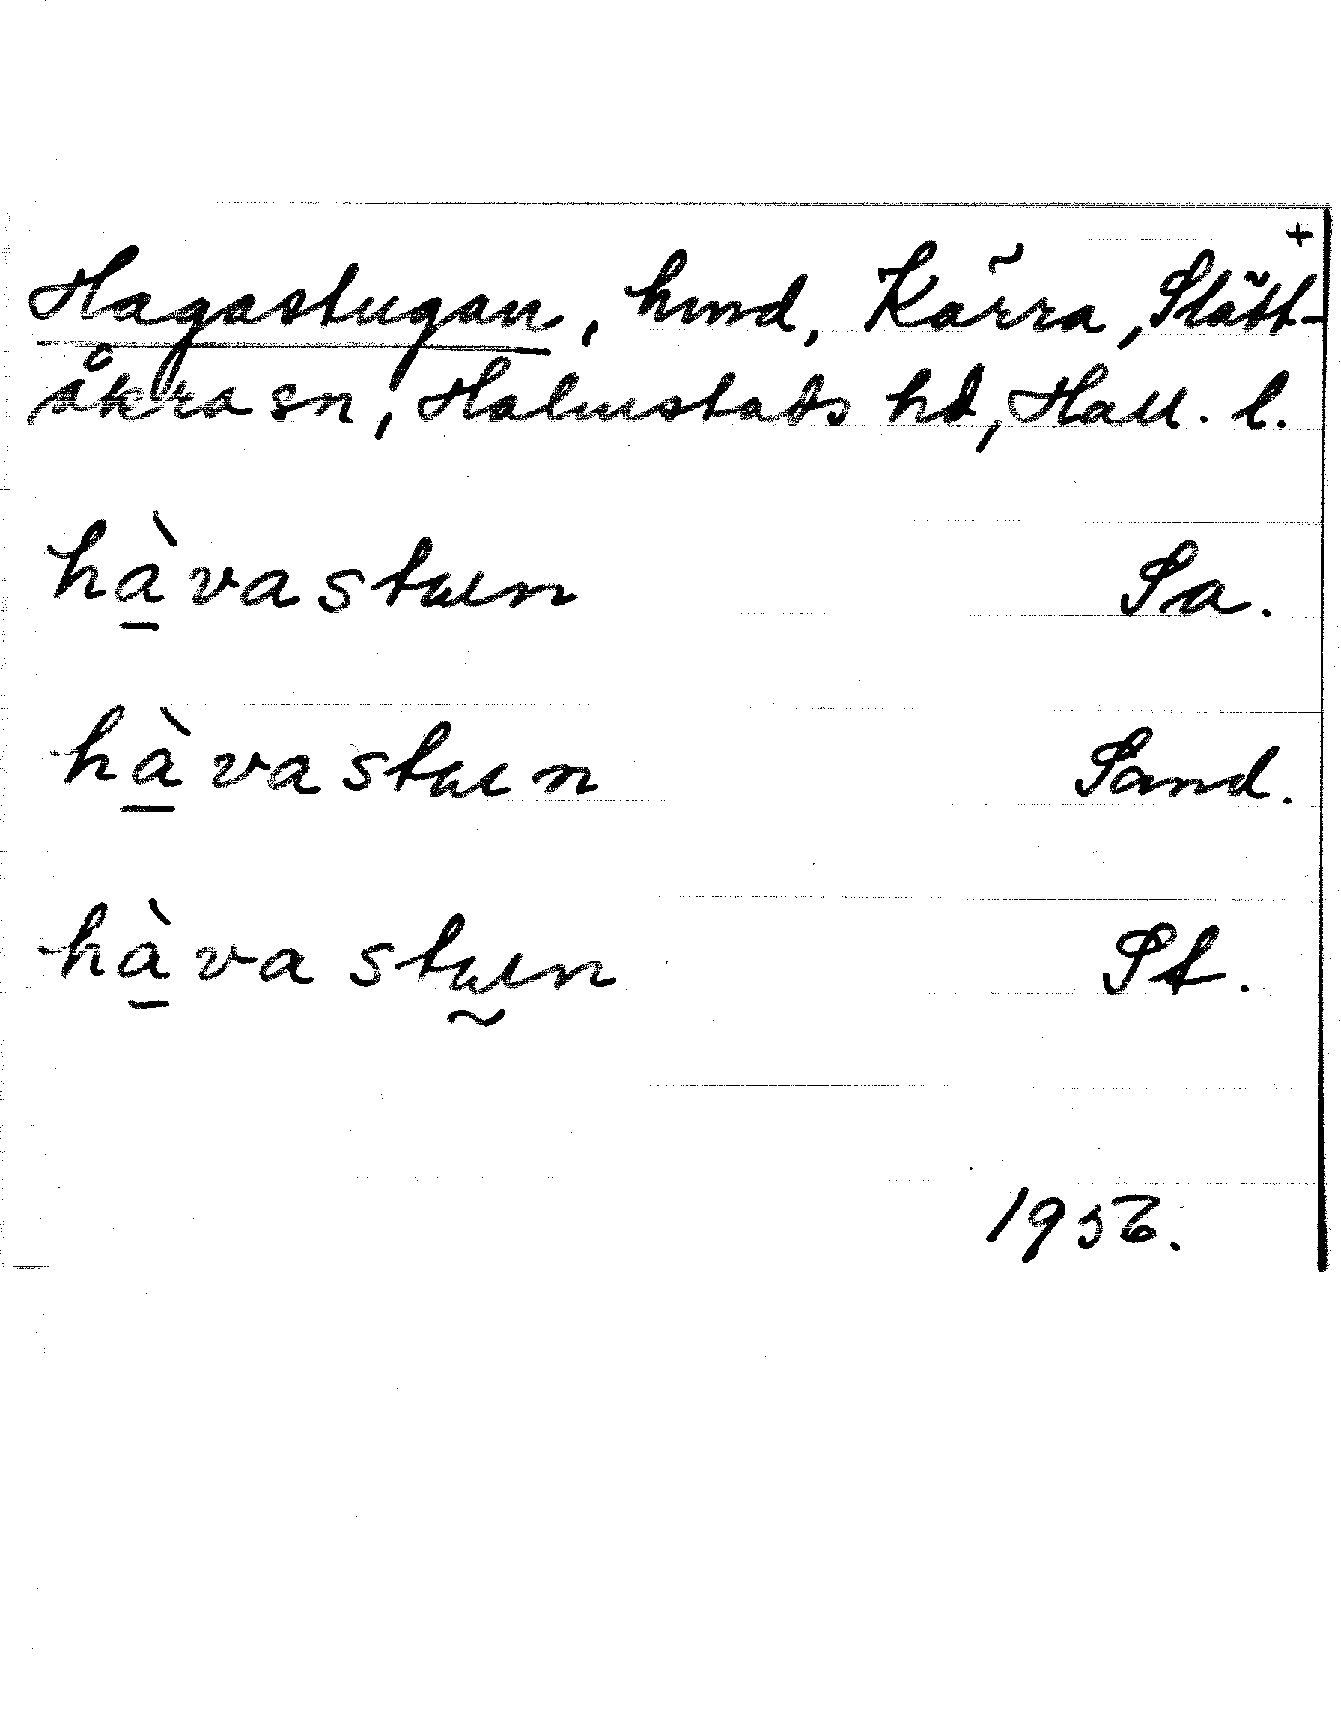 +
Hagastugan, hmd, Kärra, Slätt-
åkra sn, Halmstads hd, Hall. l.
hàvastɯn Sa.
hàvastɯn Sand.
hàvastɯn St.
1956.